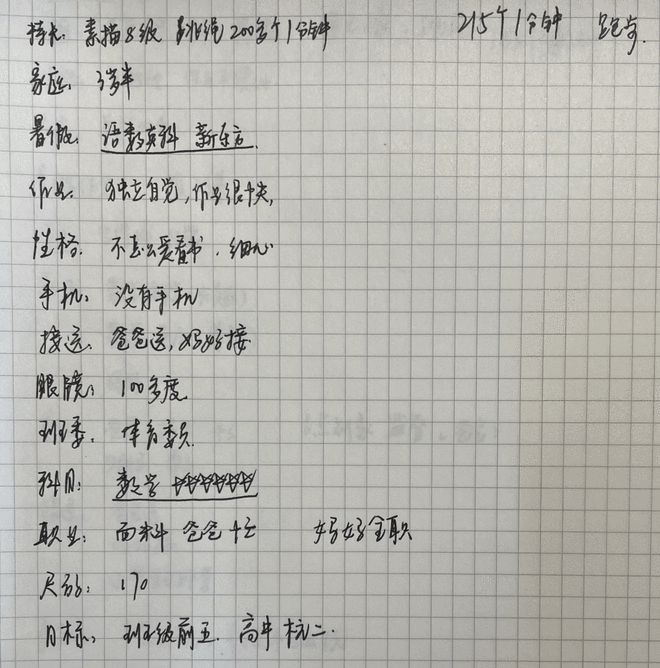 特长: 素描8级 跳绳200多个1分钟 215个1分钟 跑步.
家庭: 3岁半
暑假: 语数英科 新东方.
作业: 独立自觉,作业很快,
性格: 不怎么爱看书.细心
手机: 没有手机
接送: 爸爸送,妈妈接
眼镜: 100多度
班委: 体育委员.
科目: 数学
职业: 面料 爸爸 妈妈全职
尺码: 170
目标: 班级前五. 高中杭二.